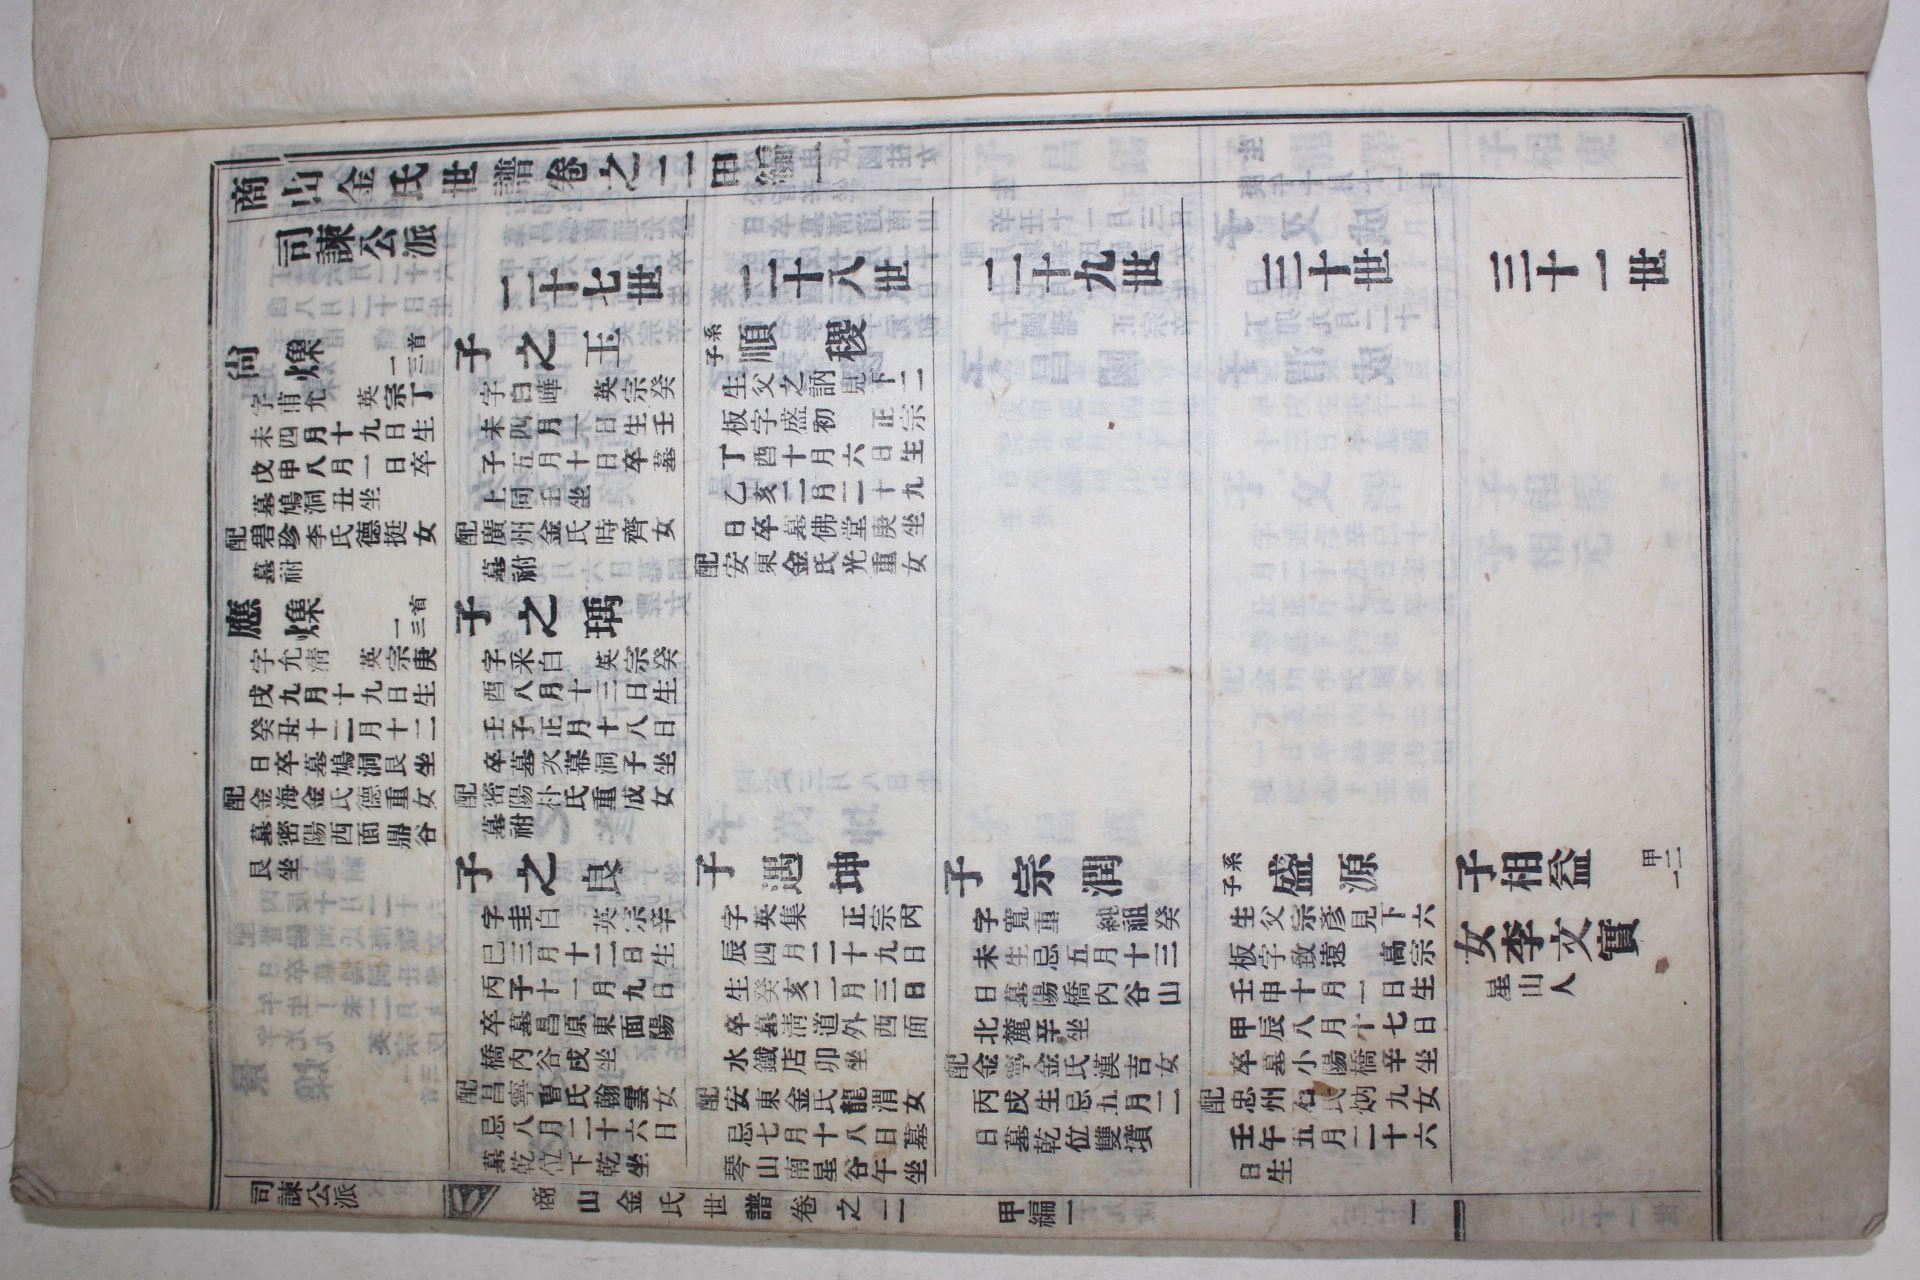 商山金氏世譜卷之二 甲編一
司諫公派
二十七世
二十八世
二十九世
三十世
三十一世
尙爍 一三首
字甫允 英宗丁
未四月十九日生
戊申八月一日卒
墓鳩洞丑坐
配碧珍李氏德挺女
墓祔
應爍 一三首
字允清 英宗庚
戌九月十九日生
癸丑十二月十二
日卒墓鳩洞艮坐
配金海金氏德重女
墓密陽西面鼎谷
艮坐
子之玉
字白曄 英宗癸
未四月一日生壬
子五月十日卒墓
上同壬坐
配廣州金氏時齊女
墓祔
子之瑀
字采白 英宗癸
酉八月十三日生
壬子正月十八日
卒墓次幕洞子坐
配密陽朴氏重成女
墓祔
子之良
字圭白 英宗辛
巳三月十二日生
丙子十一月九日
卒墓昌原東面陽
橋內谷戌坐
配昌寧曺氏翰雲女
忌八月二十六日
墓乾位下乾坐
子系順稷
生父之訥見下二
板字盛初 正宗
丁酉十月六日生
乙亥二月二十九
日卒墓佛堂庚坐
配安東金氏光重女
子遇坤
字英集 正宗丙
辰四月二十九日
生癸亥二月三日
卒墓清道外西面
水鐵店卯坐
配安東金氏龍渭女
忌七月十八日墓
琴山南星谷午坐
子宗潤
字寬重 純祖癸
未生忌五月十三
日墓陽橋內谷山
北麓辛坐
配金寧金氏漢吉女
丙戌生忌五月二
日墓乾位雙墳
子系盛源
生父宗彥見下六
板字致遠 高宗
壬申十月一日生
甲辰八月十七日
卒墓小陽橋辛坐
配忠州石氏炳九女
壬午五月二十六
日生
子相益 甲一二
女李文實
星山人
司諫公派
商山金氏世譜卷之二
甲編一
一